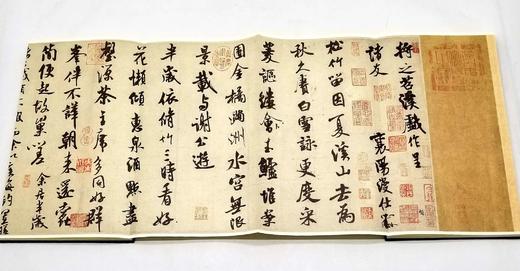 將之苕溪戲作呈
諸友 襄陽漫仕黻
松竹留因夏溪山去為
秋久賡白雪詠更度采
菱謳縷會玉鱸堆案
團金橘滿洲水宮無限
景載與謝公遊
半歲依修竹三時看好
花懶傾惠泉酒點盡
壑源茶主席多同好群
峯伴不譁朝來還蠹
簡便起故巢嗟 余居半歲